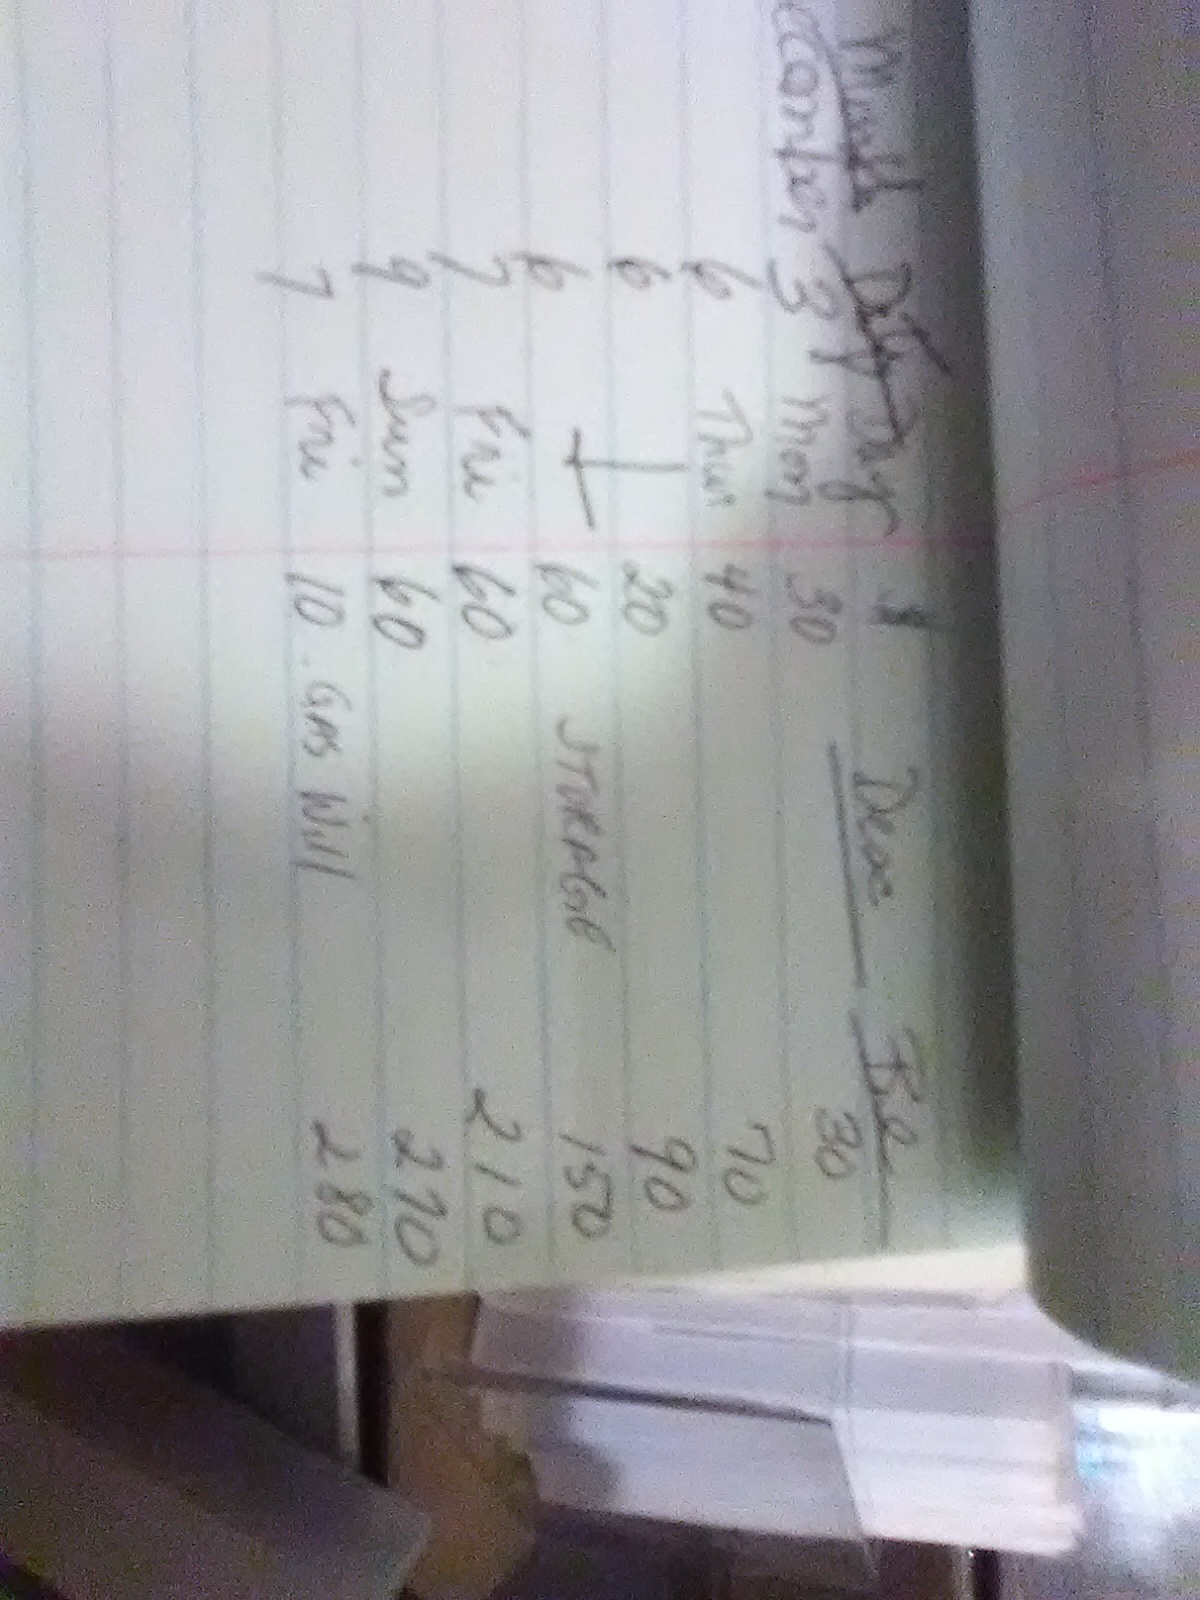 Month Date Day $ Desc Bal
3 Mon 30 30
6 Thur 40 70
6 20 90
6 60 STORAGE 150
7 Fri 60 210
9 Sun 60 270
7 Fri 10 GAS Will 280